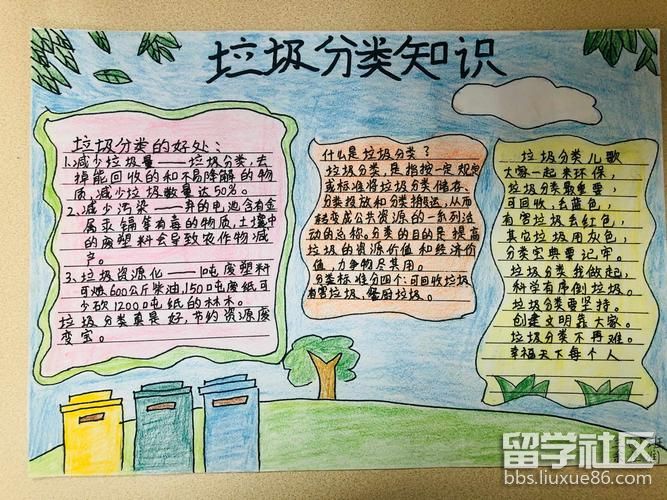 垃圾分类知识
垃圾分类的好处：
1.减少垃圾量——垃圾分类，去
掉能回收的和不易降解的物
质，减少垃圾数量达50%。
2.减少污染——弃的电池含有金
属汞镉等有毒的物质，土壤中
的废塑料会导致农作物减
产。
3.垃圾资源化——1吨废塑料
可炼600公斤柴油，1500吨废纸可
少砍1200吨纸的林木。
垃圾分类真是好，节约资源废
变宝。
什么是垃圾分类？
垃圾分类，是指按一定规定
或标准将垃圾分类储存、
分类投放和分类搬运，从而
转变成公共资源的一系列活
动的总称。分类的目的是提高
垃圾的资源价值和经济价
值，力争物尽其用。
分类标准分四个：可回收垃圾
有害垃圾、餐厨垃圾。
垃圾分类儿歌
大家一起来环保，
垃圾分类最重要；
可回收，丢蓝色，
有害垃圾丢红色，
其它垃圾用灰色，
分类宝典要记牢。
垃圾分类我做起，
科学有序倒垃圾。
垃圾分类要坚持。
创建文明靠大家。
垃圾分类不再难。
幸福天下每个人
留学社区
bbs.liuxue86.com